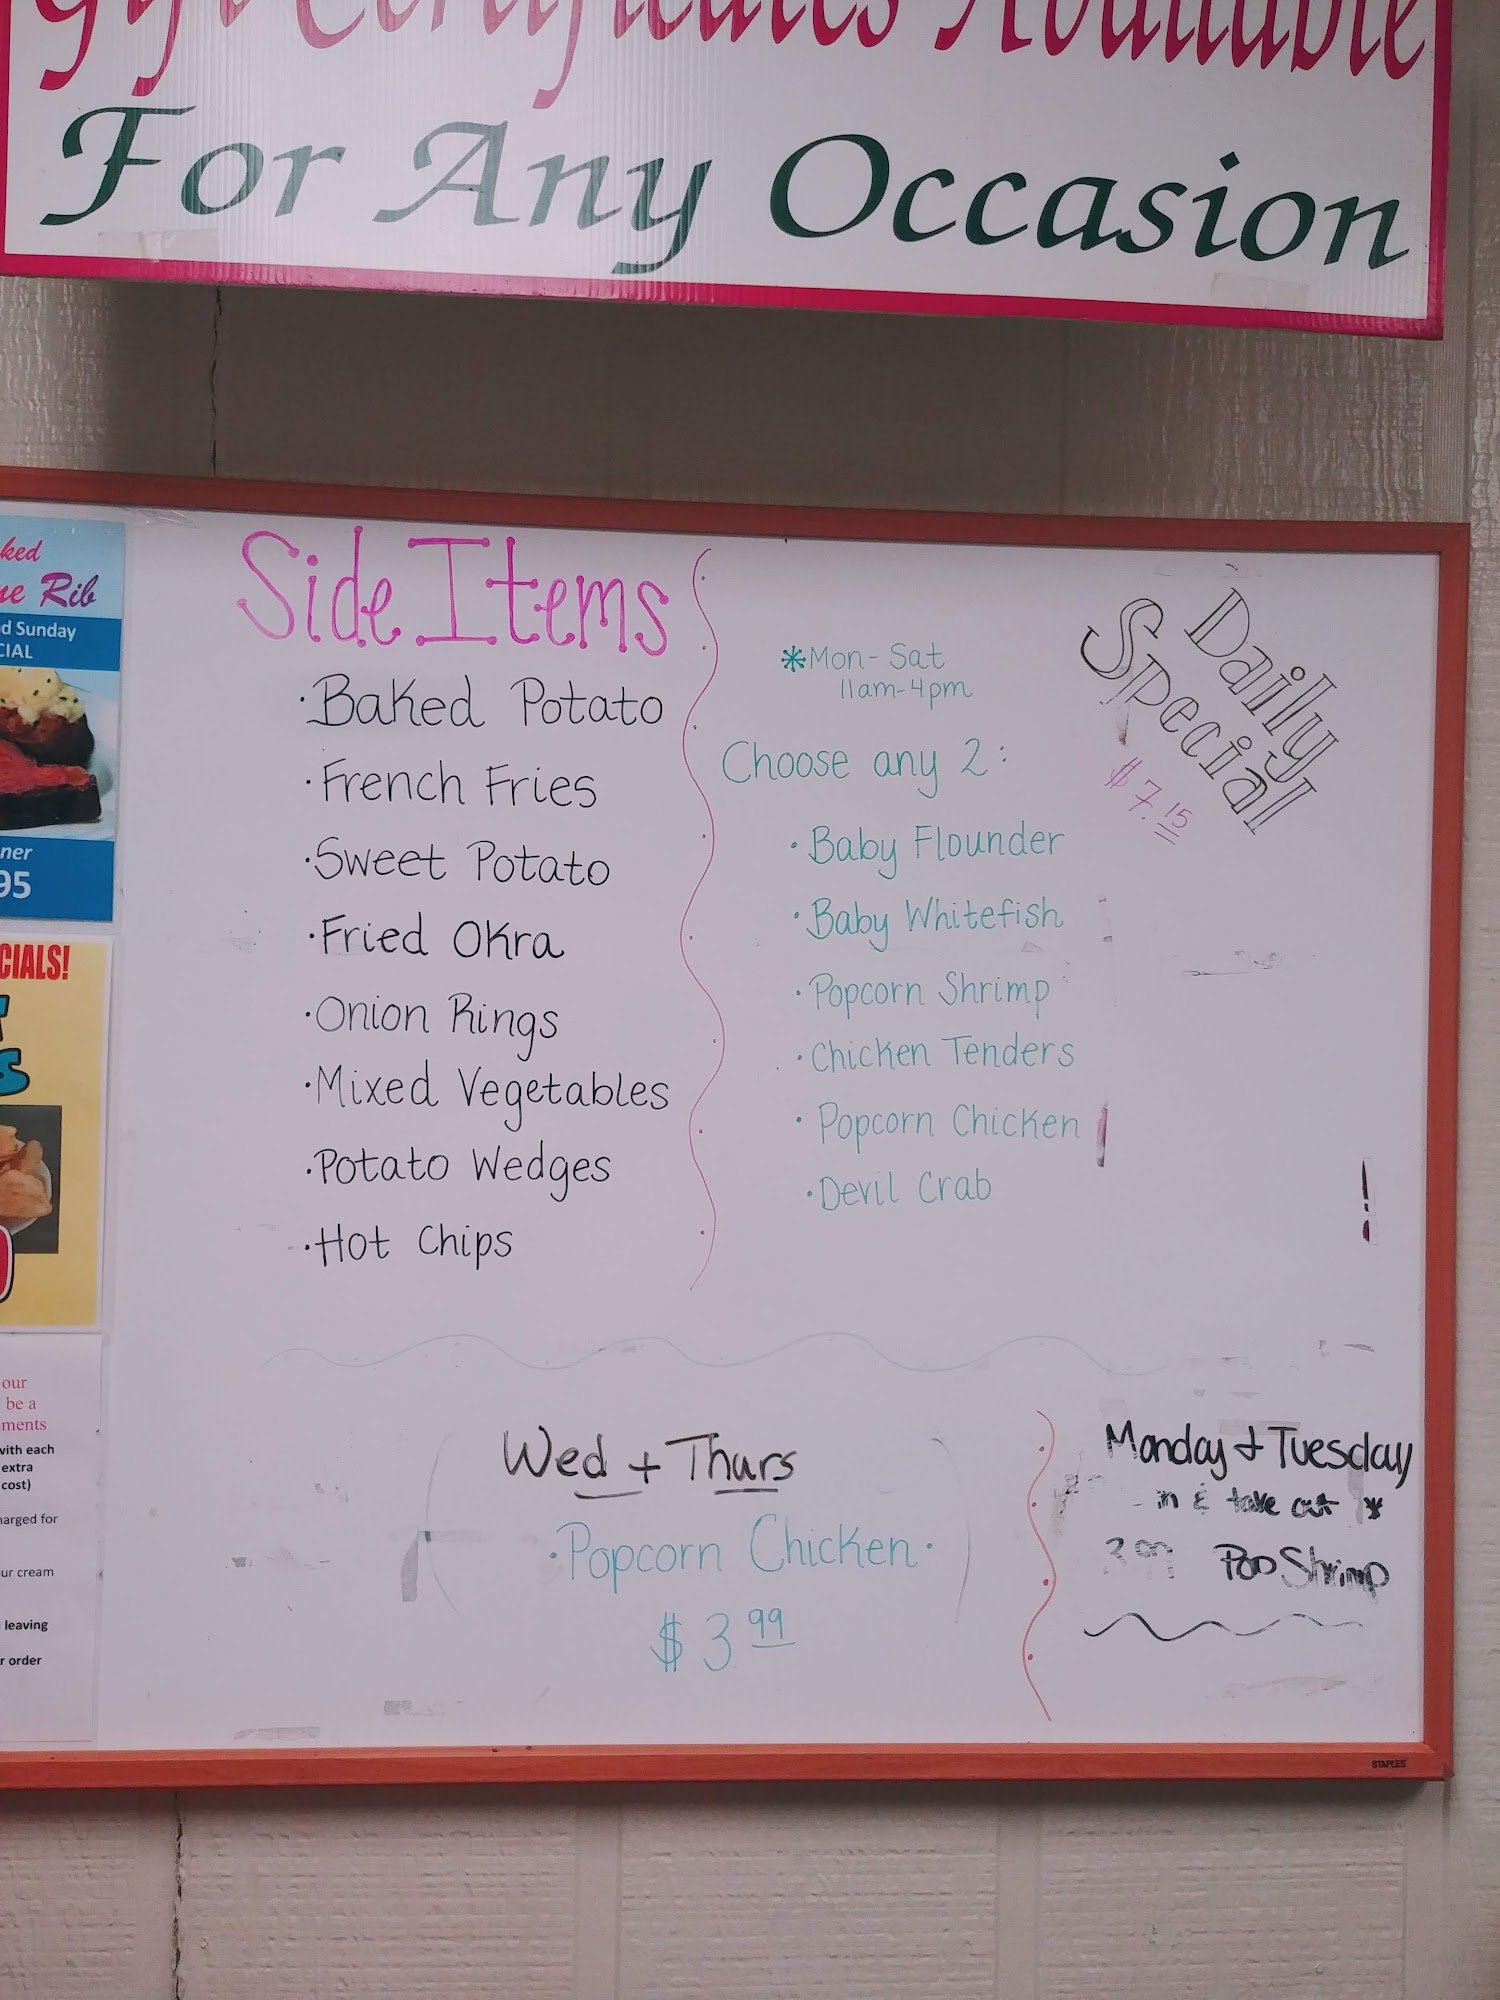 Gift Certificates Available
For Any Occasion
ked
ne Rib
d Sunday
CIAL
ner
95
CIALS!
our
be a
ments
with each
extra
cost)
harged for
ur cream
leaving
r order
Side Items
·Baked Potato
·French Fries
·Sweet Potato
·Fried Okra
·Onion Rings
·Mixed Vegetables
·Potato Wedges
·Hot Chips
Daily
Special
$7.15
*Mon-Sat
11am-4pm
Choose any 2:
·Baby Flounder
·Baby Whitefish
·Popcorn Shrimp
·Chicken Tenders
·Popcorn Chicken
·Devil Crab
Wed + Thurs
·Popcorn Chicken·
$3.99
Monday & Tuesday
in & take out *
3.99 Pop Shrimp
STAPLES